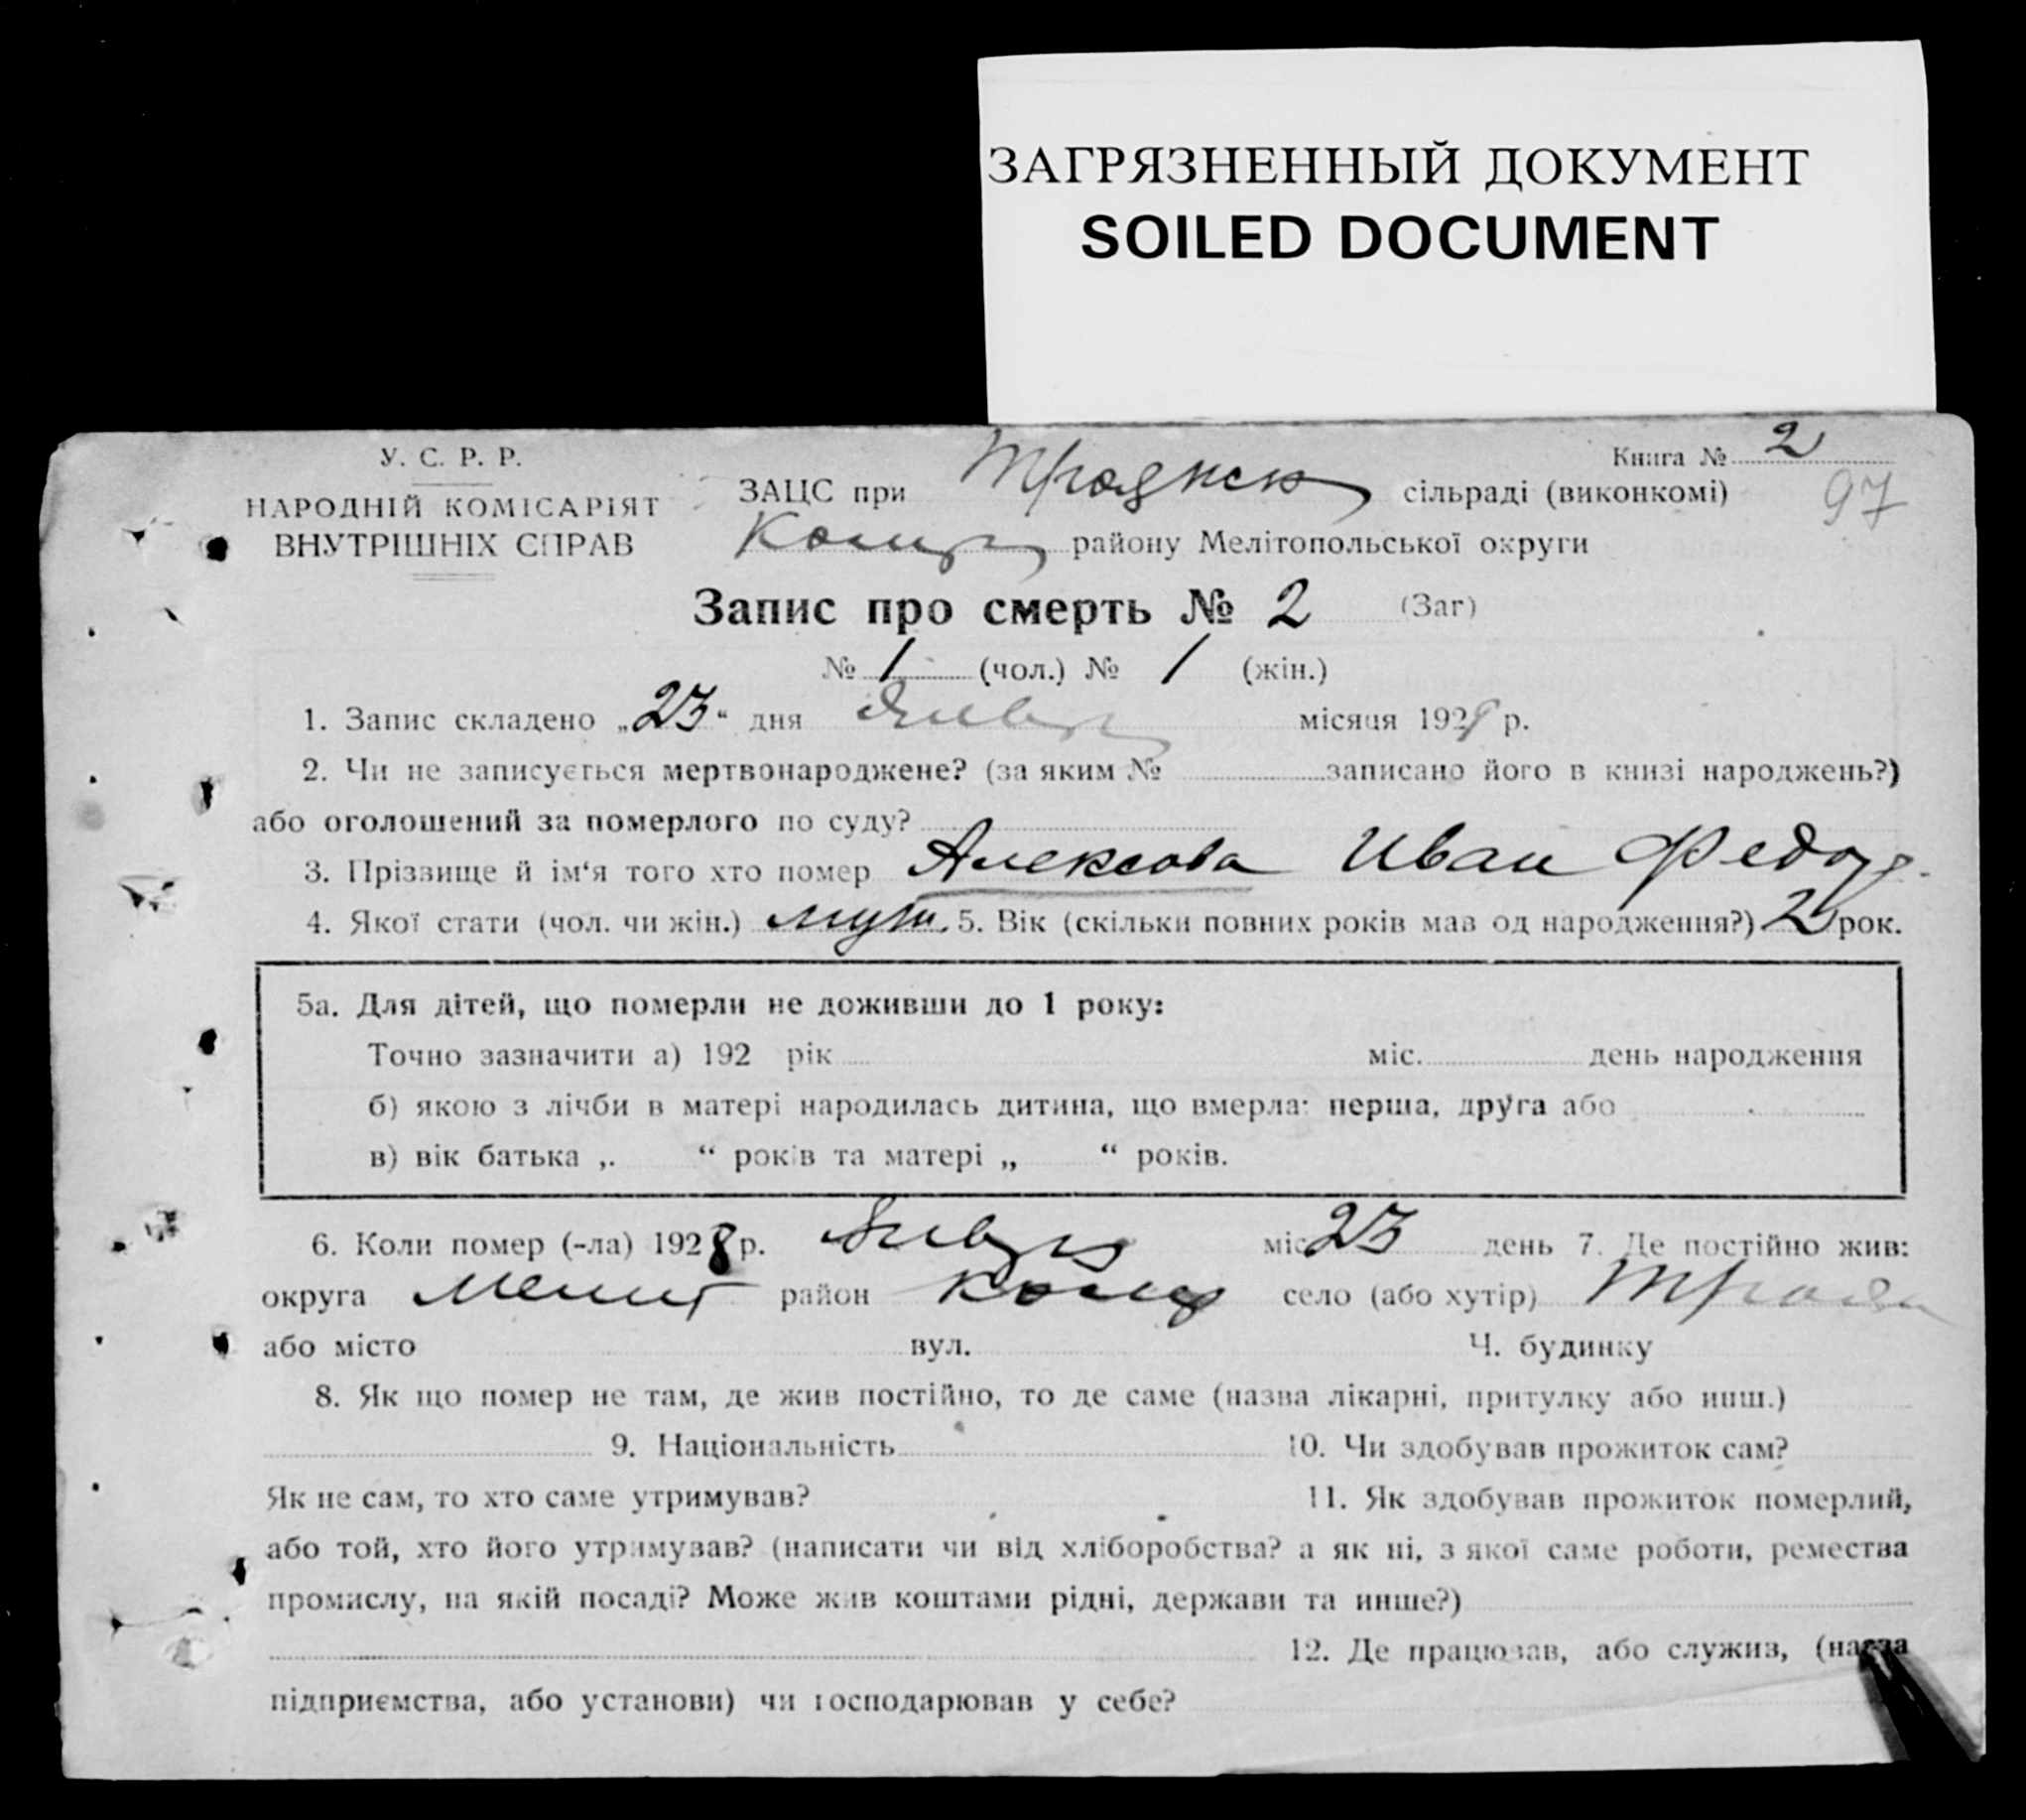 ЗАГРЯЗНЕННЫЙ ДОКУМЕНТ
SOILED DOCUMENT
У. С. Р. Р.
НАРОДНІЙ КОМІСАРІЯТ
ВНУТРІШНІХ СПРАВ
Книга № 2
97
ЗАЦС при сільраді (виконкомі)
району Мелітопольської округи
Запис про смерть № 2 (Заг)
№ 1 (чол.) № 1 (жін.)
1. Запис складено „23“ дня місяця 192 р.
2. Чи не записується мертвонароджене? (за яким № записано його в книзі народжень?)
або оголошений за померлого по суду?
3. Прізвище й ім‘я того хто помер Алексова Иван Федор.
4. Якої стати (чол. чи жін.) муж. 5. Вік (скільки повних років мав од народження?) 2 рок.
5а. Для дітей, що померли не доживши до 1 року:
Точно зазначити а) 192 рік міс. день народження
б) якою з лічби в матері народилась дитина, що вмерла: перша, друга або
в) вік батька „ “ років та матері „ “ років.
6. Коли помер (-ла) 1928 р. міс 23 день 7. Де постійно жив:
округа Мелит район село (або хутір) Троян
або місто вул. Ч. будинку
8. Як що помер не там, де жив постійно, то де саме (назва лікарні, притулку або инш.)
9. Національність 10. Чи здобував прожиток сам?
Як не сам, то хто саме утримував? 11. Як здобував прожиток померлий,
або той, хто його утримував? (написати чи від хліборобства? а як ні, з якої саме роботи, ремества
промислу, на якій посаді? Може жив коштами рідні, держави та инше?)
12. Де працював, або служив, (назва
підприємства, або установи) чи господарював у себе?